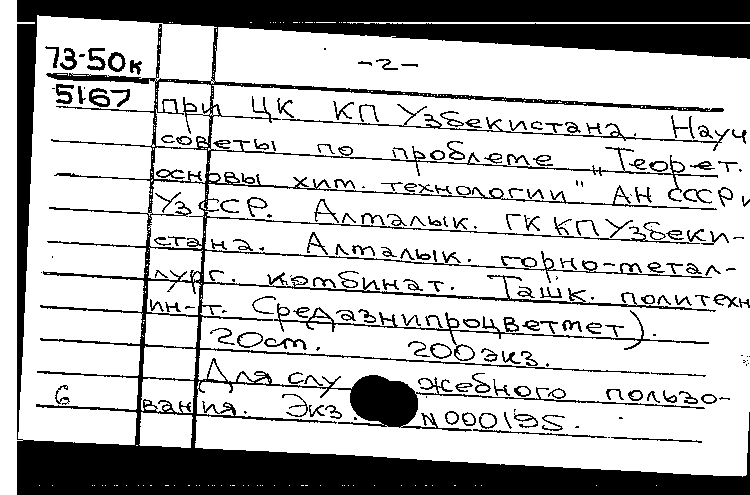 73-50к -2-
5167 при ЦК КП Узбекистана. Науч
советы по проблеме „Теорет.
основы хим. технологии" АН СССР и
УзССР. Алмалык. ГК КП Узбеки-
стана. Алмалык. горно-метал-
лург. комбинат. Ташк. политехн
ин-т. Средазнипроцветмет).
20ст. 200экз.
Для слу жебного пользо-
6 вания. Экз. N000195.